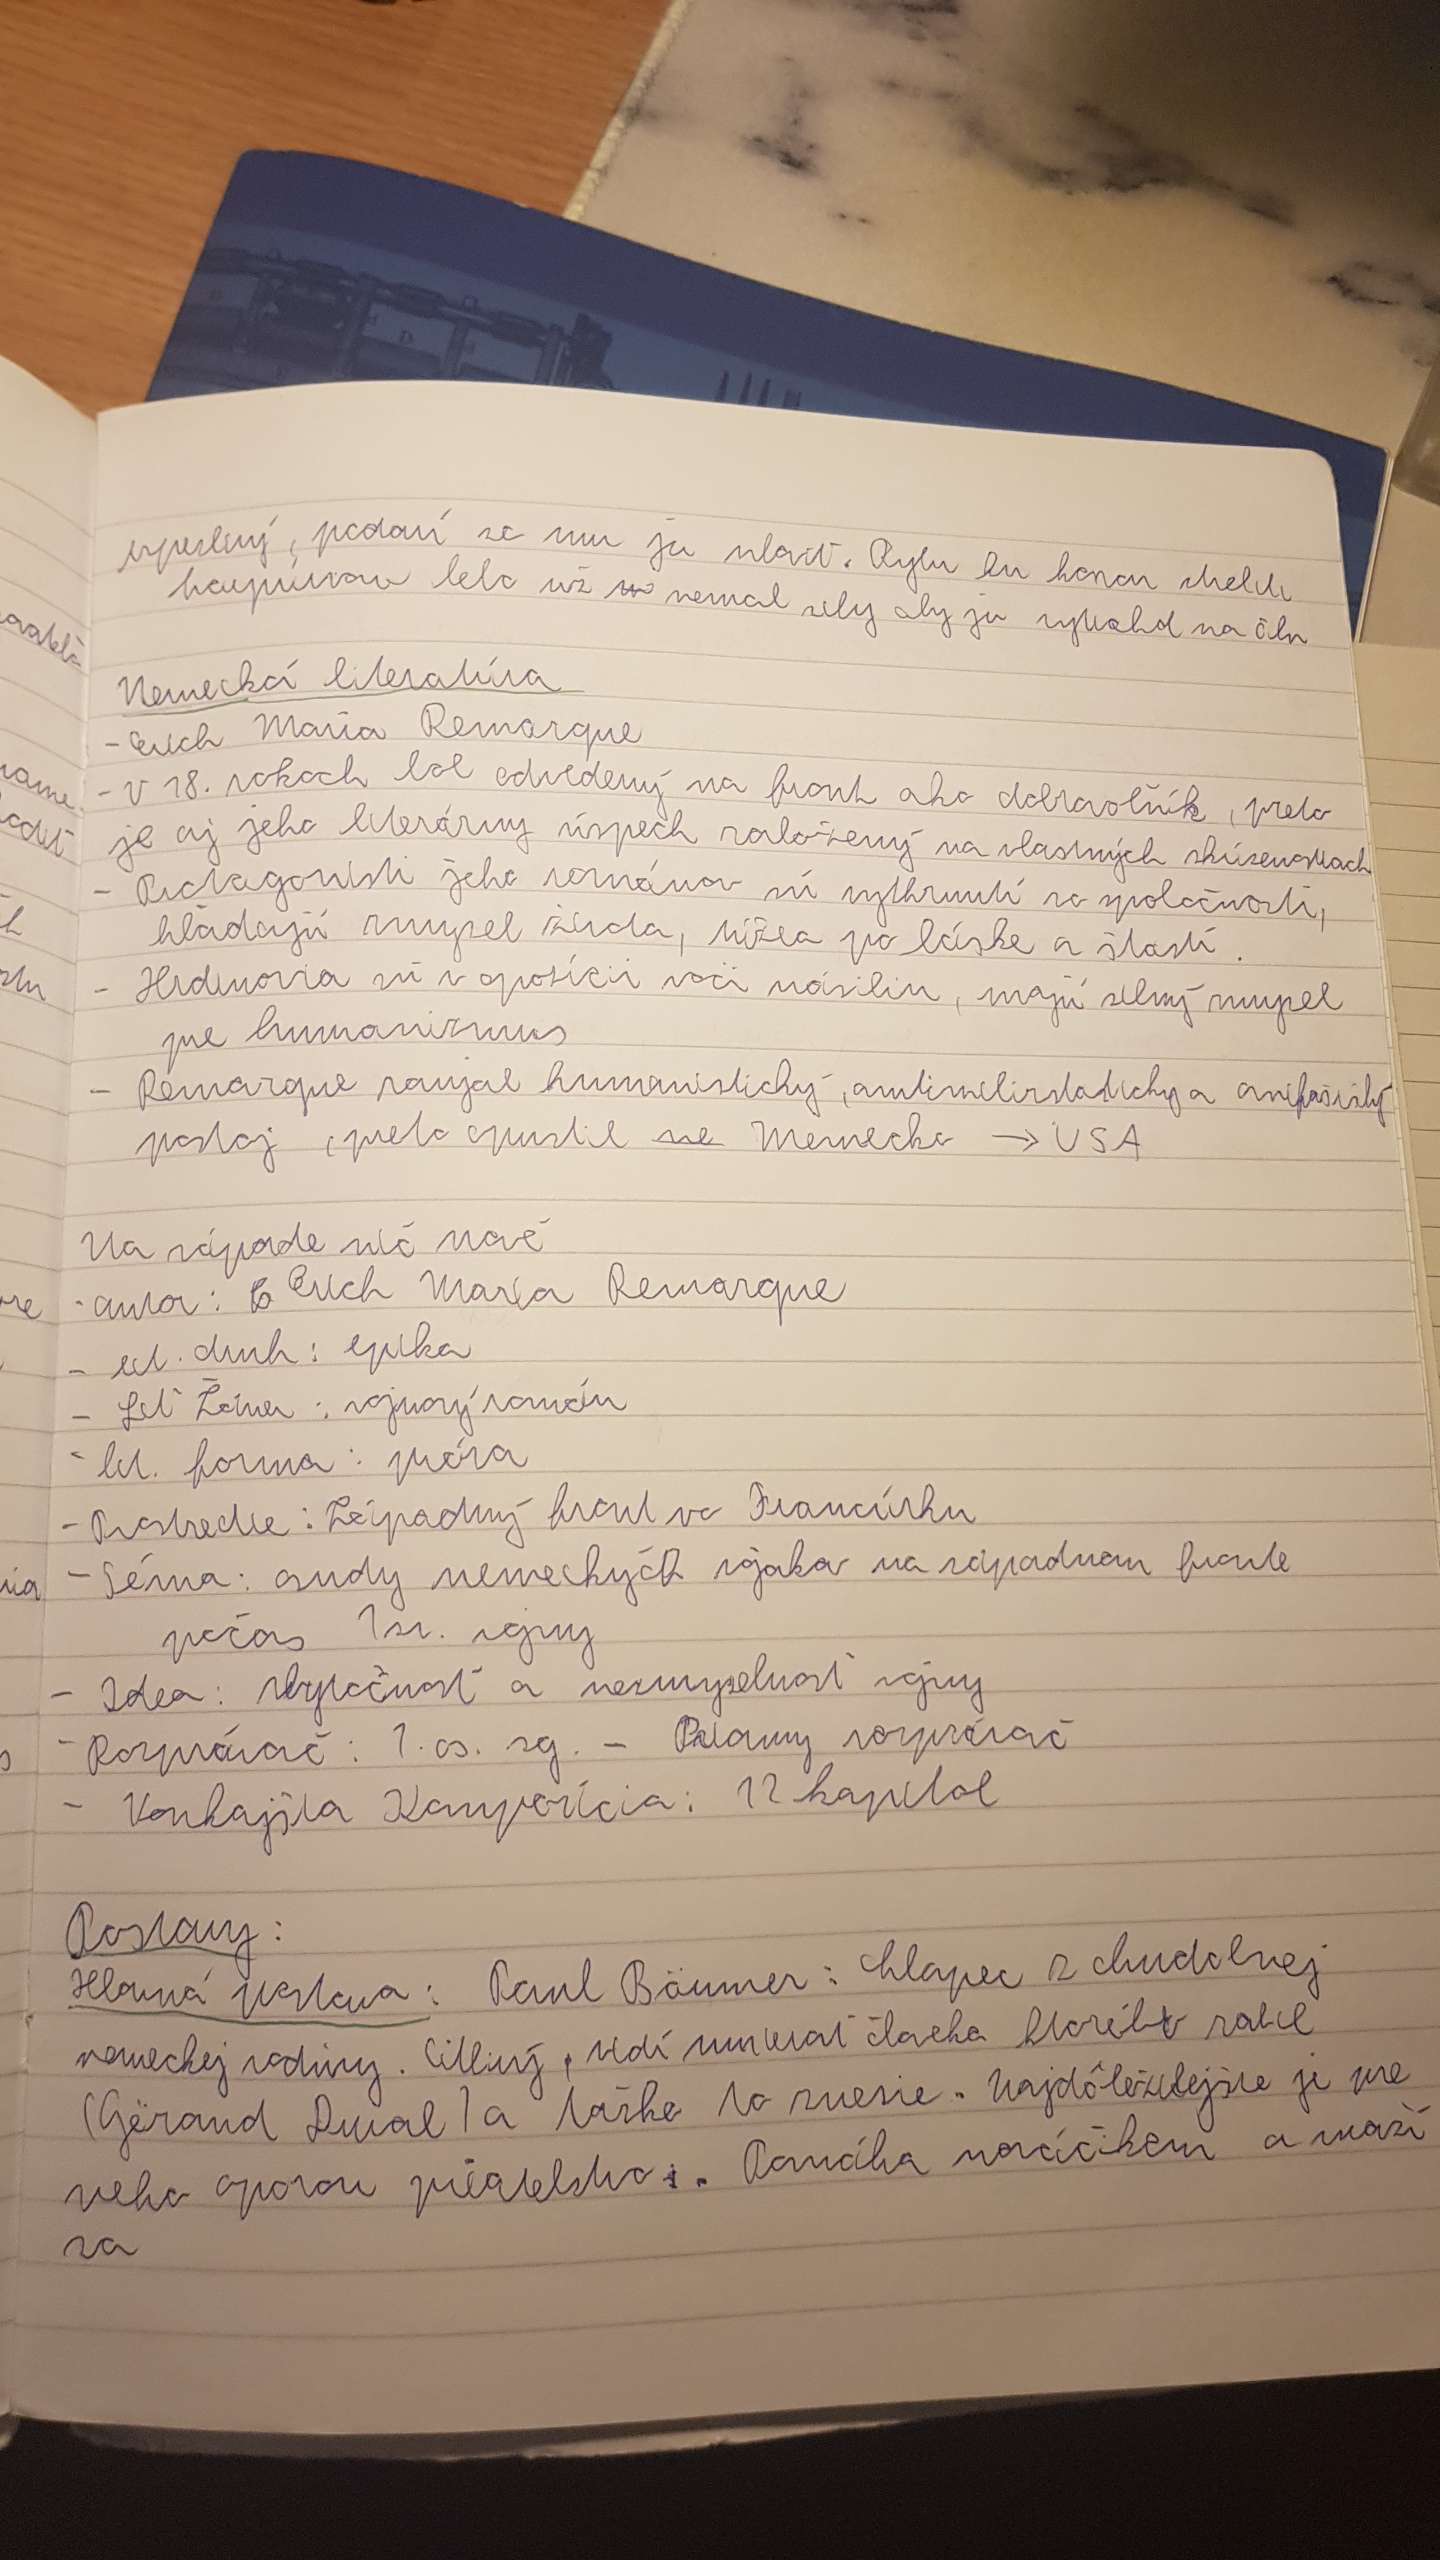 vyperlený, podarí sa mu ju uloviť. Rybu len horou
harpúnou lebo už nemal sily aby ju vytiahol na čln
Nemecká literatúra
- Erich Maria Remarque
- V 18. rokoch bol odvedený na front ako dobrovoľník, preto
je aj jeho literárny úspech založený na vlastných skúsenostiach
- Protagonisti jeho románov sú vytrhnutí zo spoločnosti,
hľadajú zmysel života, túžia po láske a šťastí.
- Hrdinovia sú v opozícii voči násiliu, majú silný zmysel
pre humanizmus
- Remarque zaujal humanistický, antimilitaristický a antifašistický
postoj, preto opustil Nemecko → USA
Na západe nič nové
- autor: Erich Maria Remarque
- lit. druh: epika
- Lit Žáner: vojnový román
- lit. forma: próza
- Prostredie: Západný front vo Francúzku
- Téma: osudy nemeckých vojakov na západnom fronte
počas 1 sv. vojny
- Idea: zbytočnosť a nezmyselnosť vojny
- Rozprávač: 1. os. sg. - Priamy rozprávač
- Vonkajšia Kompozícia: 12 kapitol
Postavy:
Hlavná postava: Paul Bäumer: chlapec z chudobnej
nemeckej rodiny. Citlivý, vidí umierať človeka ktorého zabil
(Gérard Duval) a ťažko to znesie. Najdôležitejšie je pre
neho oporou priateľstvo. Pomáha nováčikom a snaží
sa